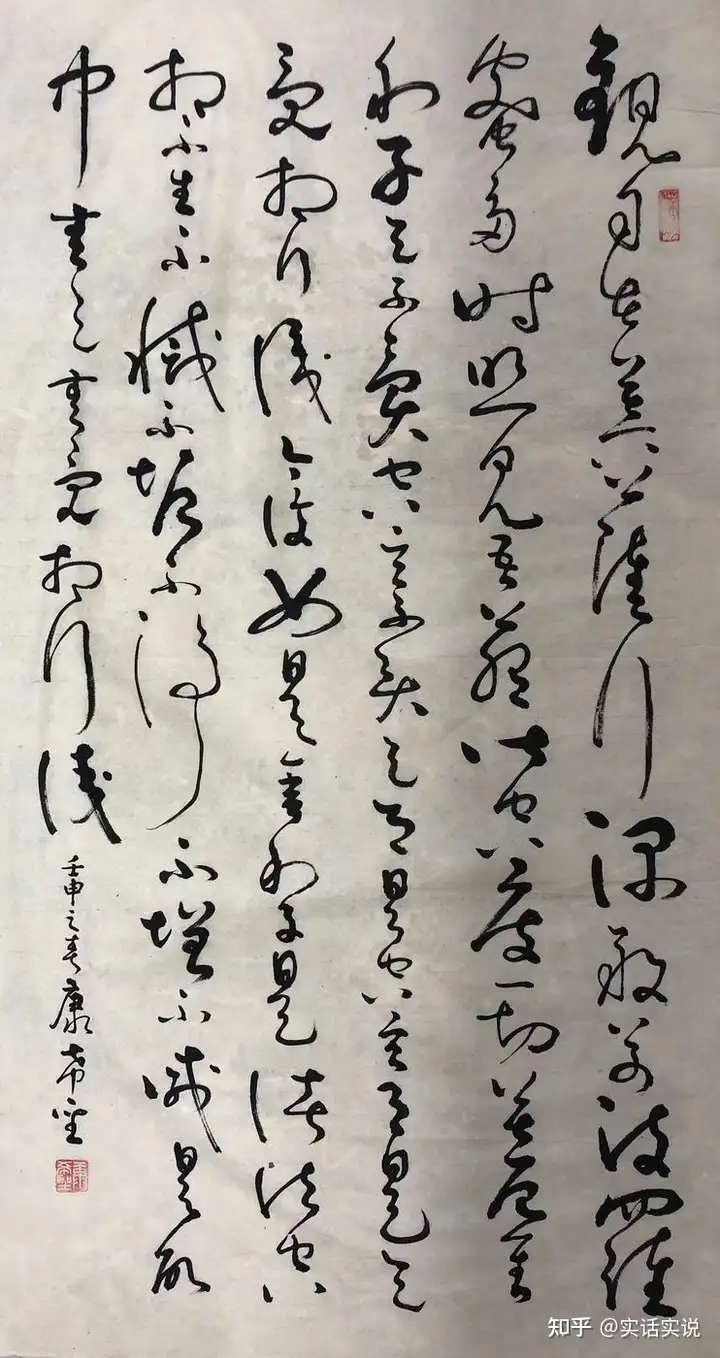 觀自在菩薩行深般若波羅
蜜多時照見五蘊皆空度一切苦厄舍
利子色不異空空不異色色即是空空即是色
受想行識亦復如是舍利子是諸法空
相不生不滅不垢不淨不增不減是故
中無色無受想行識 壬申之春康希聖
知乎 @实话实说